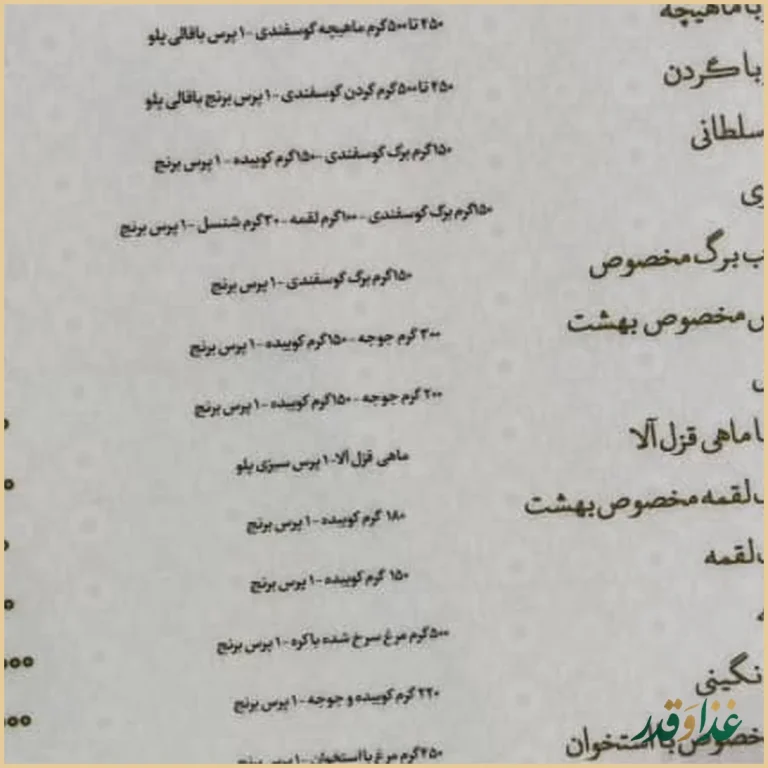 با ماهیچه
۴۵۰ تا ۵۰۰ گرم ماهیچه گوسفندی - ۱ پرس باقالی پلو
با گردن
۴۵۰ تا ۵۰۰ گرم گردن گوسفندی - ۱ پرس برنج باقالی پلو
سلطانی
۱۵۰ گرم برگ گوسفندی - ۱۵۰ گرم کوبیده - ۱ پرس برنج
۱۵۰ گرم برگ گوسفندی - ۱۰۰ گرم لقمه - ۳۰ گرم شنسل - ۱ پرس برنج
برگ مخصوص
۱۵۰ گرم برگ گوسفندی - ۱ پرس برنج
مخصوص بهشت
۳۰۰ گرم جوجه - ۱۵۰ گرم کوبیده - ۱ پرس برنج
۲۰۰ گرم جوجه - ۱۵۰ گرم کوبیده - ۱ پرس برنج
ماهی قزل آلا
ماهی قزل آلا - ۱ پرس سبزی پلو
لقمه مخصوص بهشت
۱۸۰ گرم کوبیده - ۱ پرس برنج
لقمه
۱۵۰ گرم کوبیده - ۱ پرس برنج
۵۰۰ گرم مرغ سرخ شده با کره - ۱ پرس برنج
نگینی
۲۲۰ گرم کوبیده و جوجه - ۱ پرس برنج
با استخوان
۴۵۰ گرم مرغ با استخوان - ۱ پرس برنج
غذا و قدر